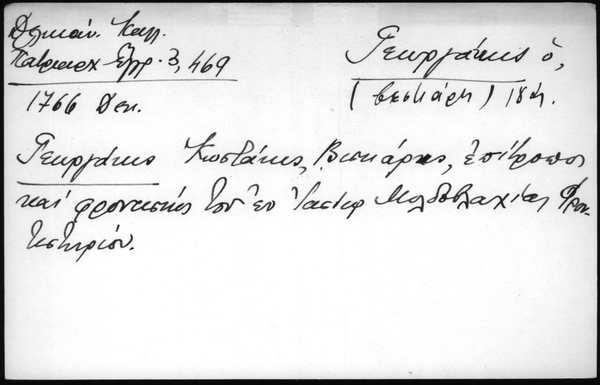 Δελικάν. Καλλ.
Πατριαρχ. Έγγρ. 3, 469
1766 Δεκ.
Γεωργάκης ὁ,
(βεστιάρη) 18ος.
Γεωργάκης Κωστάκης, Βιστιάρης, ἐπίτροπος
καὶ φροντιστὴς τοῦ ἐν Ἰασίῳ Μολδοβλαχίας Φρον-
τιστηρίου.